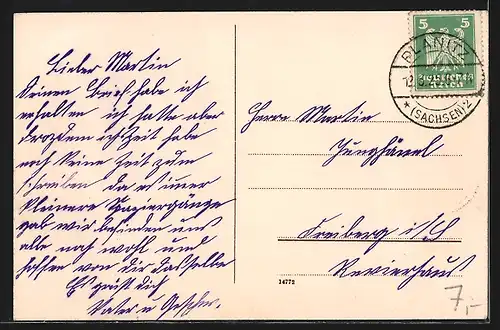 Lieber Martin
deinen Brief habe ich
erhalten ich hatte aber
trozdem ich Zeit habe
noch keine Zeit zum
schreiben da es imer
kleinere Spaziergänge
gab wir befinden uns
alle noch wohl und
hoffen von dir dasselbe
Es grüßt dich
Vater u
PLANITZ
(SACHSEN) 2
5 5
Deutsches
Reich
Herrn Martin
Junghänel
Freiberg i/S
Revierhaus
14772
7,-